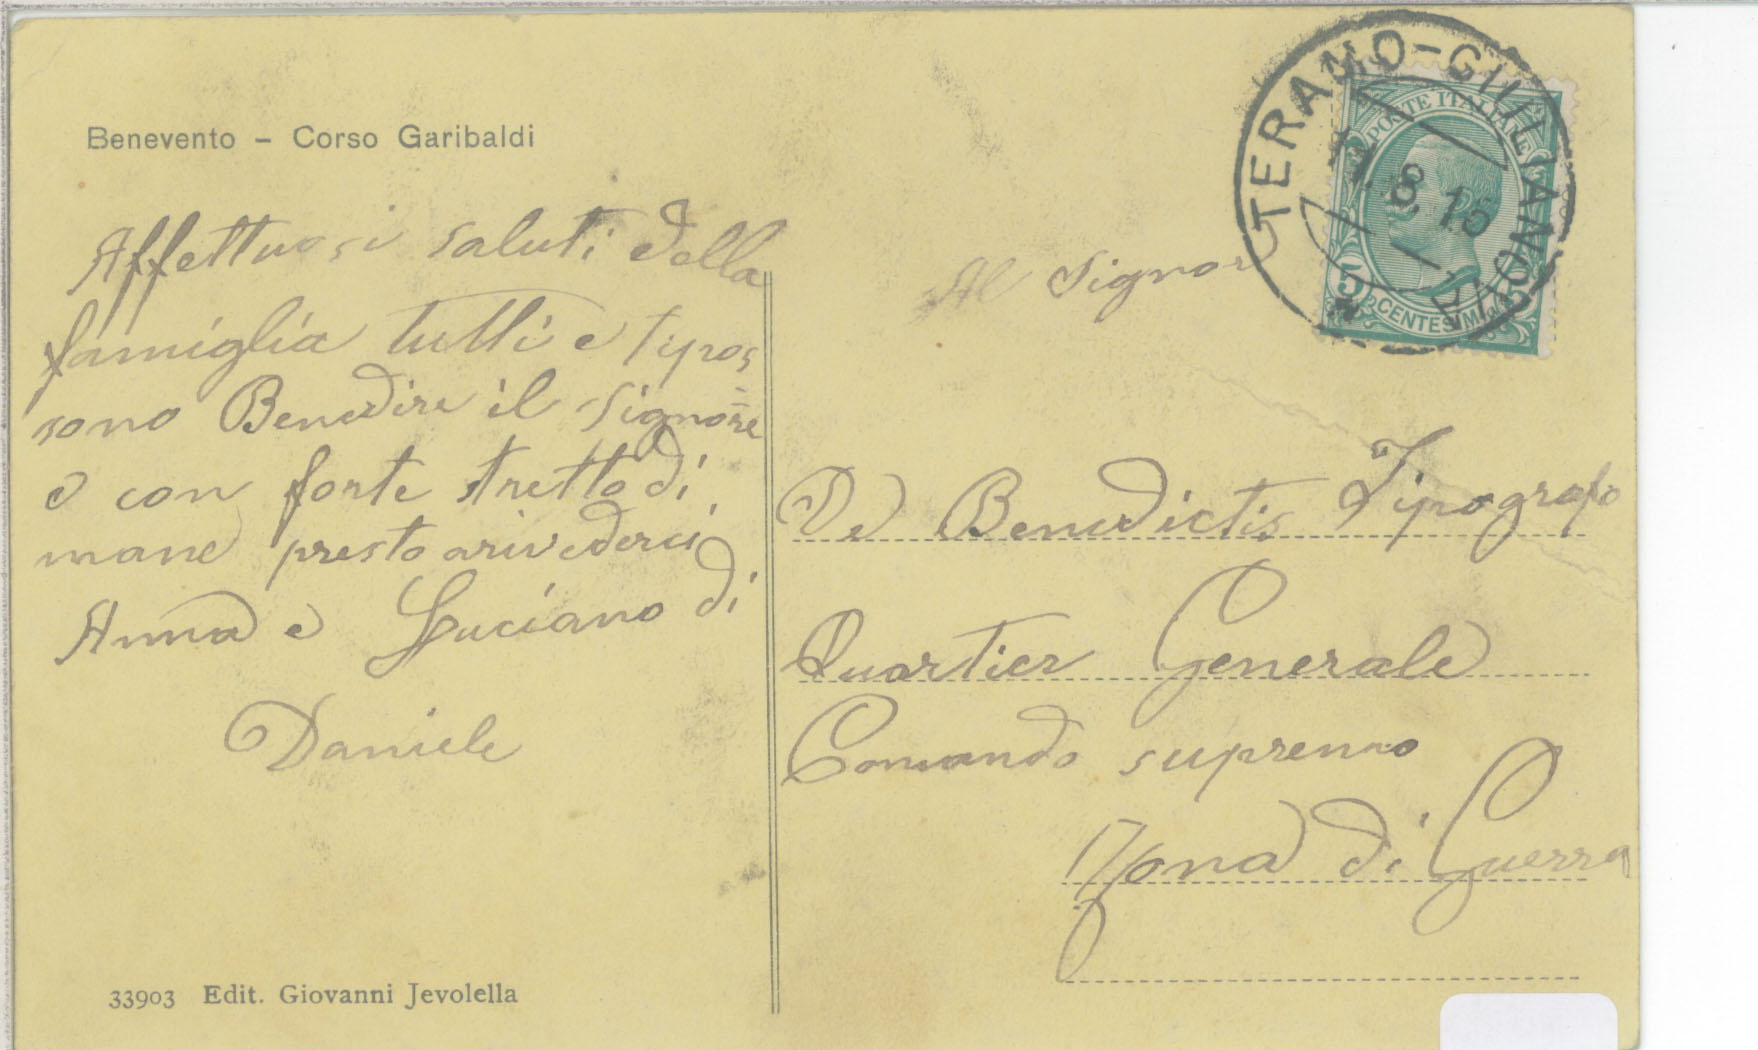 Benevento – Corso Garibaldi
Affettuosi saluti della
famiglia tutti e ti pos
sono Benedire il Signore
e con forte stretto di
mane presto arivederci
Anna e Luciano di
Daniele
33903 Edit. Giovanni Jevolella
TERAMO-GIULIANOVA
8.16
POSTE ITALIANE
5 CENTESIMI 5
Al Signor
De Benedictis Tipografo
Quartier Generale
Comando supremo
Zona di Guerra